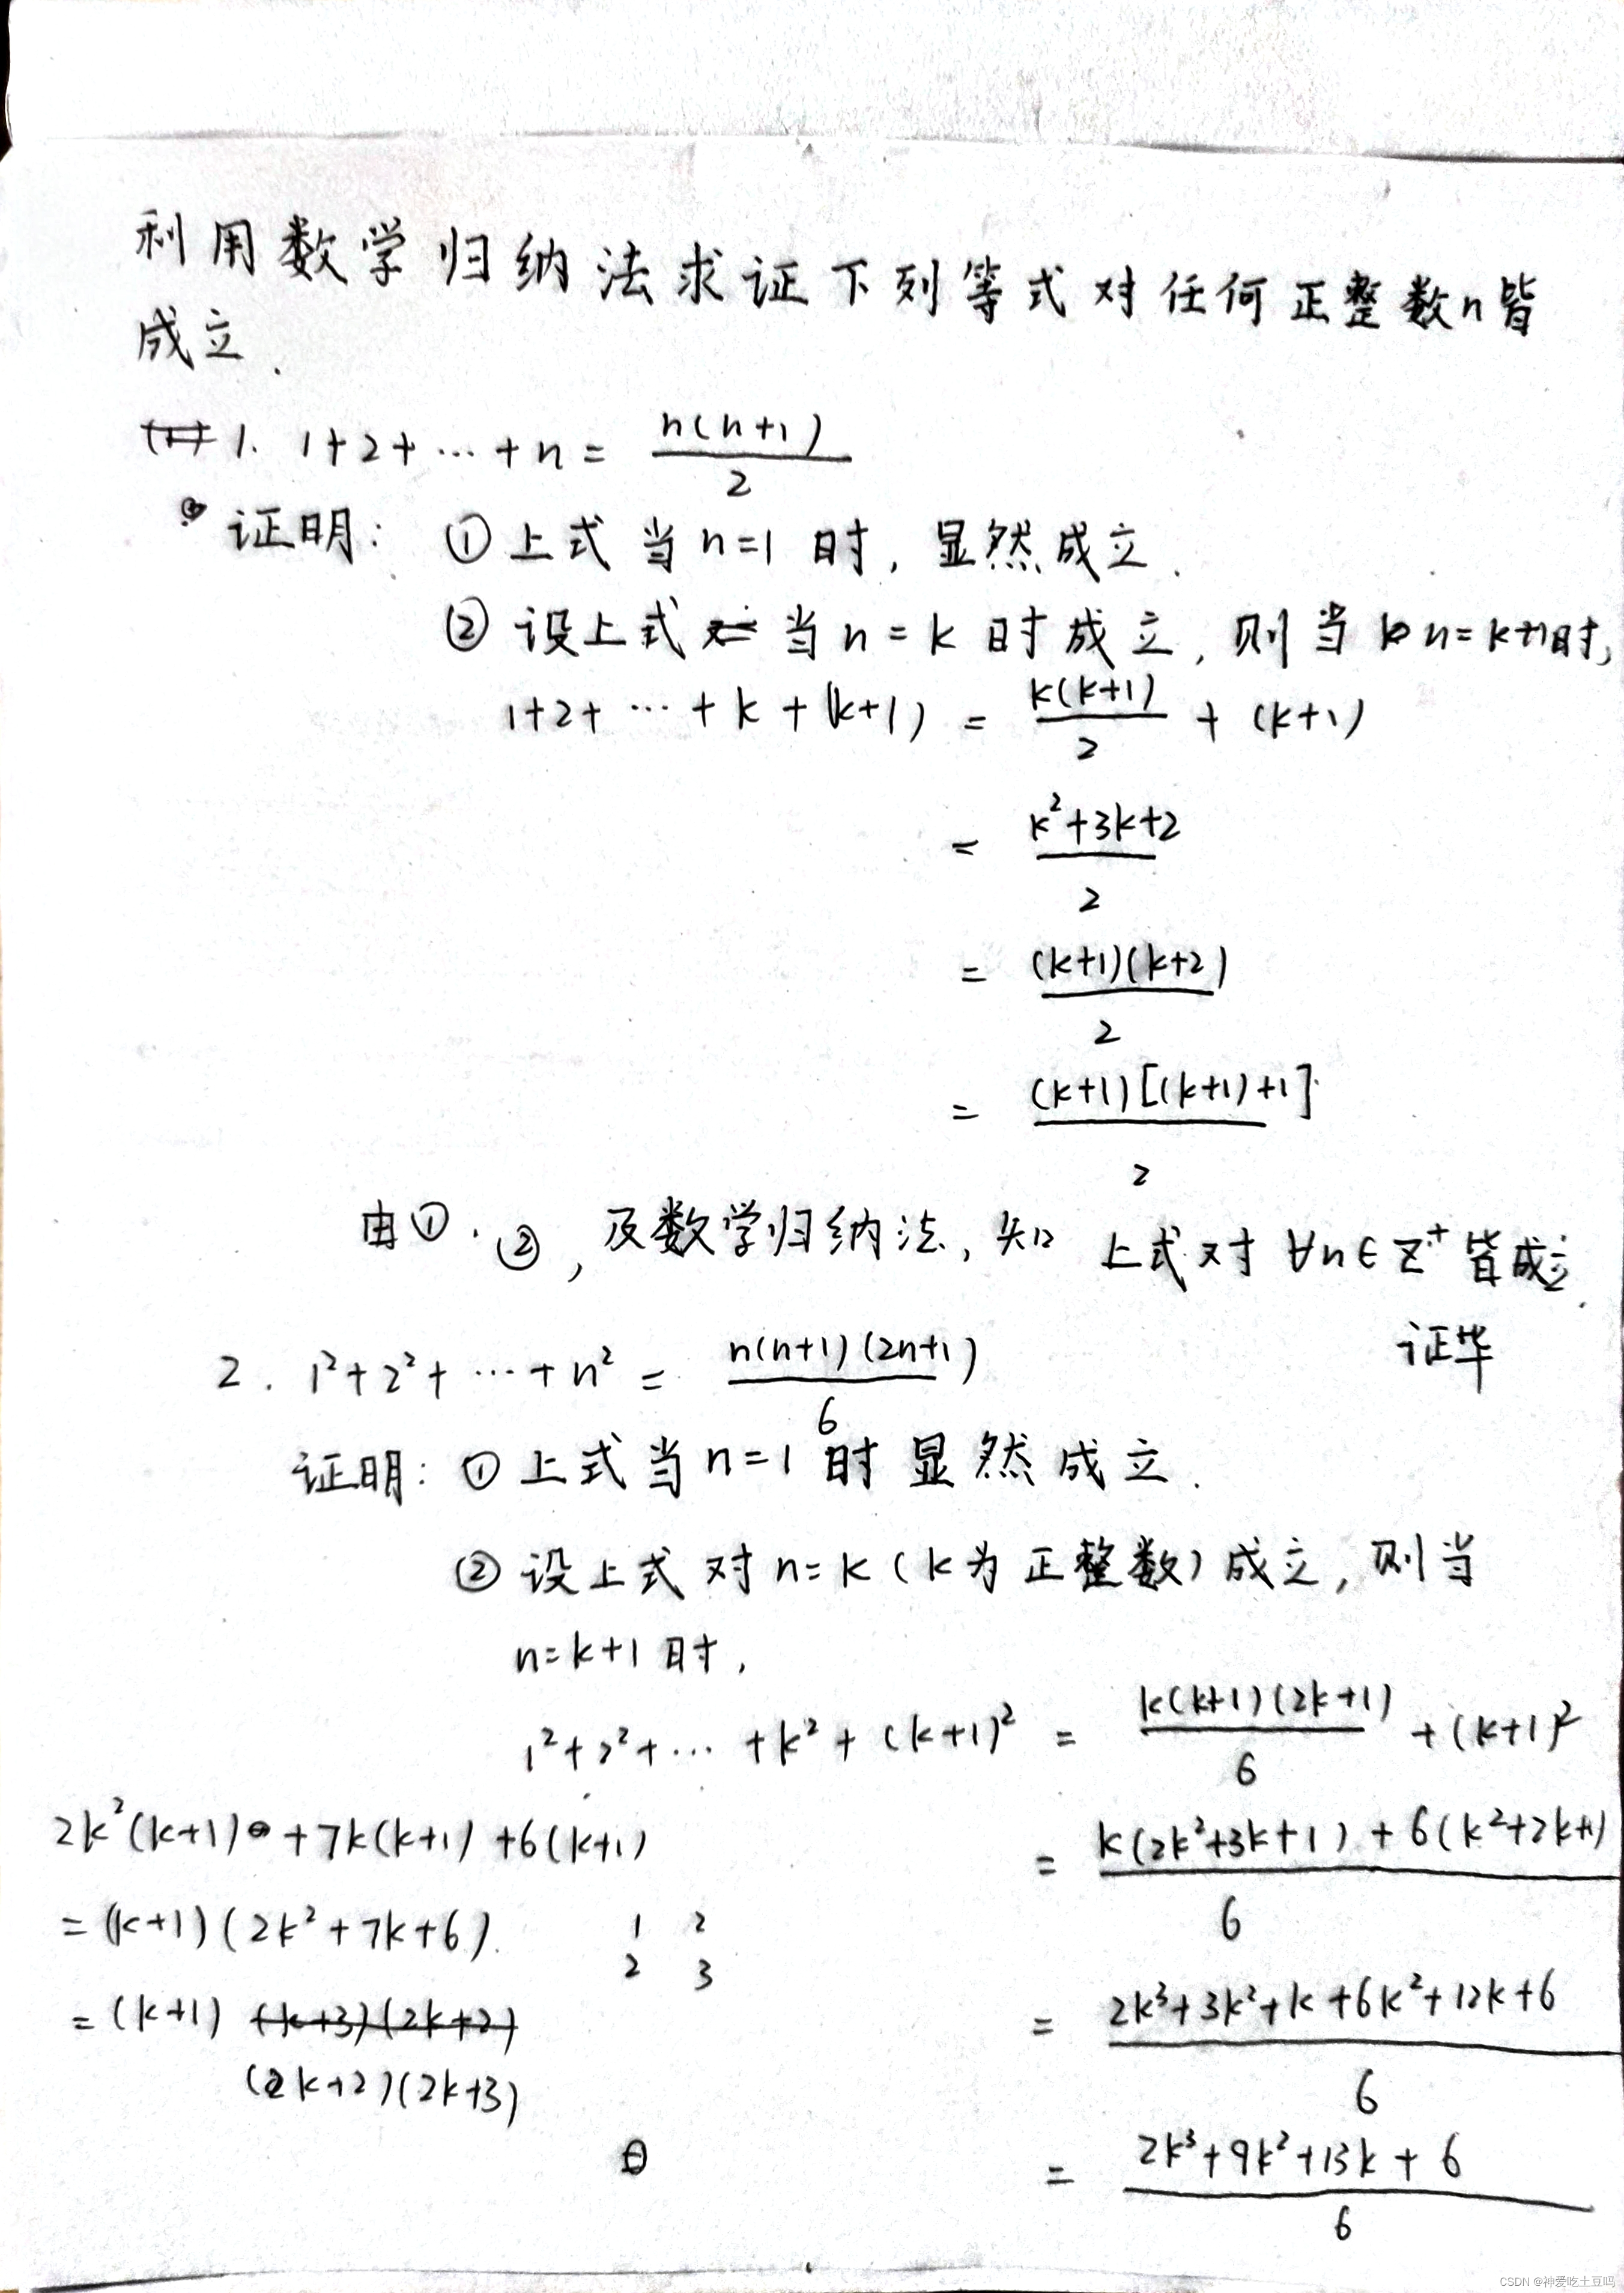 利用数学归纳法求证下列等式对任何正整数n皆
成立.
1. 1+2+…+n = n(n+1)/2
证明: ①上式当n=1时,显然成立.
②设上式当n=k时成立,则当n=k+1时,
1+2+…+k+(k+1) = k(k+1)/2 + (k+1)
= (k²+3k+2)/2
= (k+1)(k+2)/2
= (k+1)[(k+1)+1]/2
由①.②,及数学归纳法,知上式对∀n∈Z⁺皆成立.
证毕
2. 1²+2²+…+n² = n(n+1)(2n+1)/6
证明: ①上式当n=1时显然成立.
②设上式对n=k(k为正整数)成立,则当
n=k+1时,
1²+2²+…+k²+(k+1)² = k(k+1)(2k+1)/6 + (k+1)²
= k(2k²+3k+1)+6(k²+2k+1)/6
= 2k³+3k²+k+6k²+12k+6/6
= 2k³+9k²+13k+6/6
2k²(k+1)+7k(k+1)+6(k+1)
=(k+1)(2k²+7k+6).
1 2
2 3
=(k+1) (k+3)(2k+2)
(k+2)(2k+3)
CSDN @神爱吃土豆吗